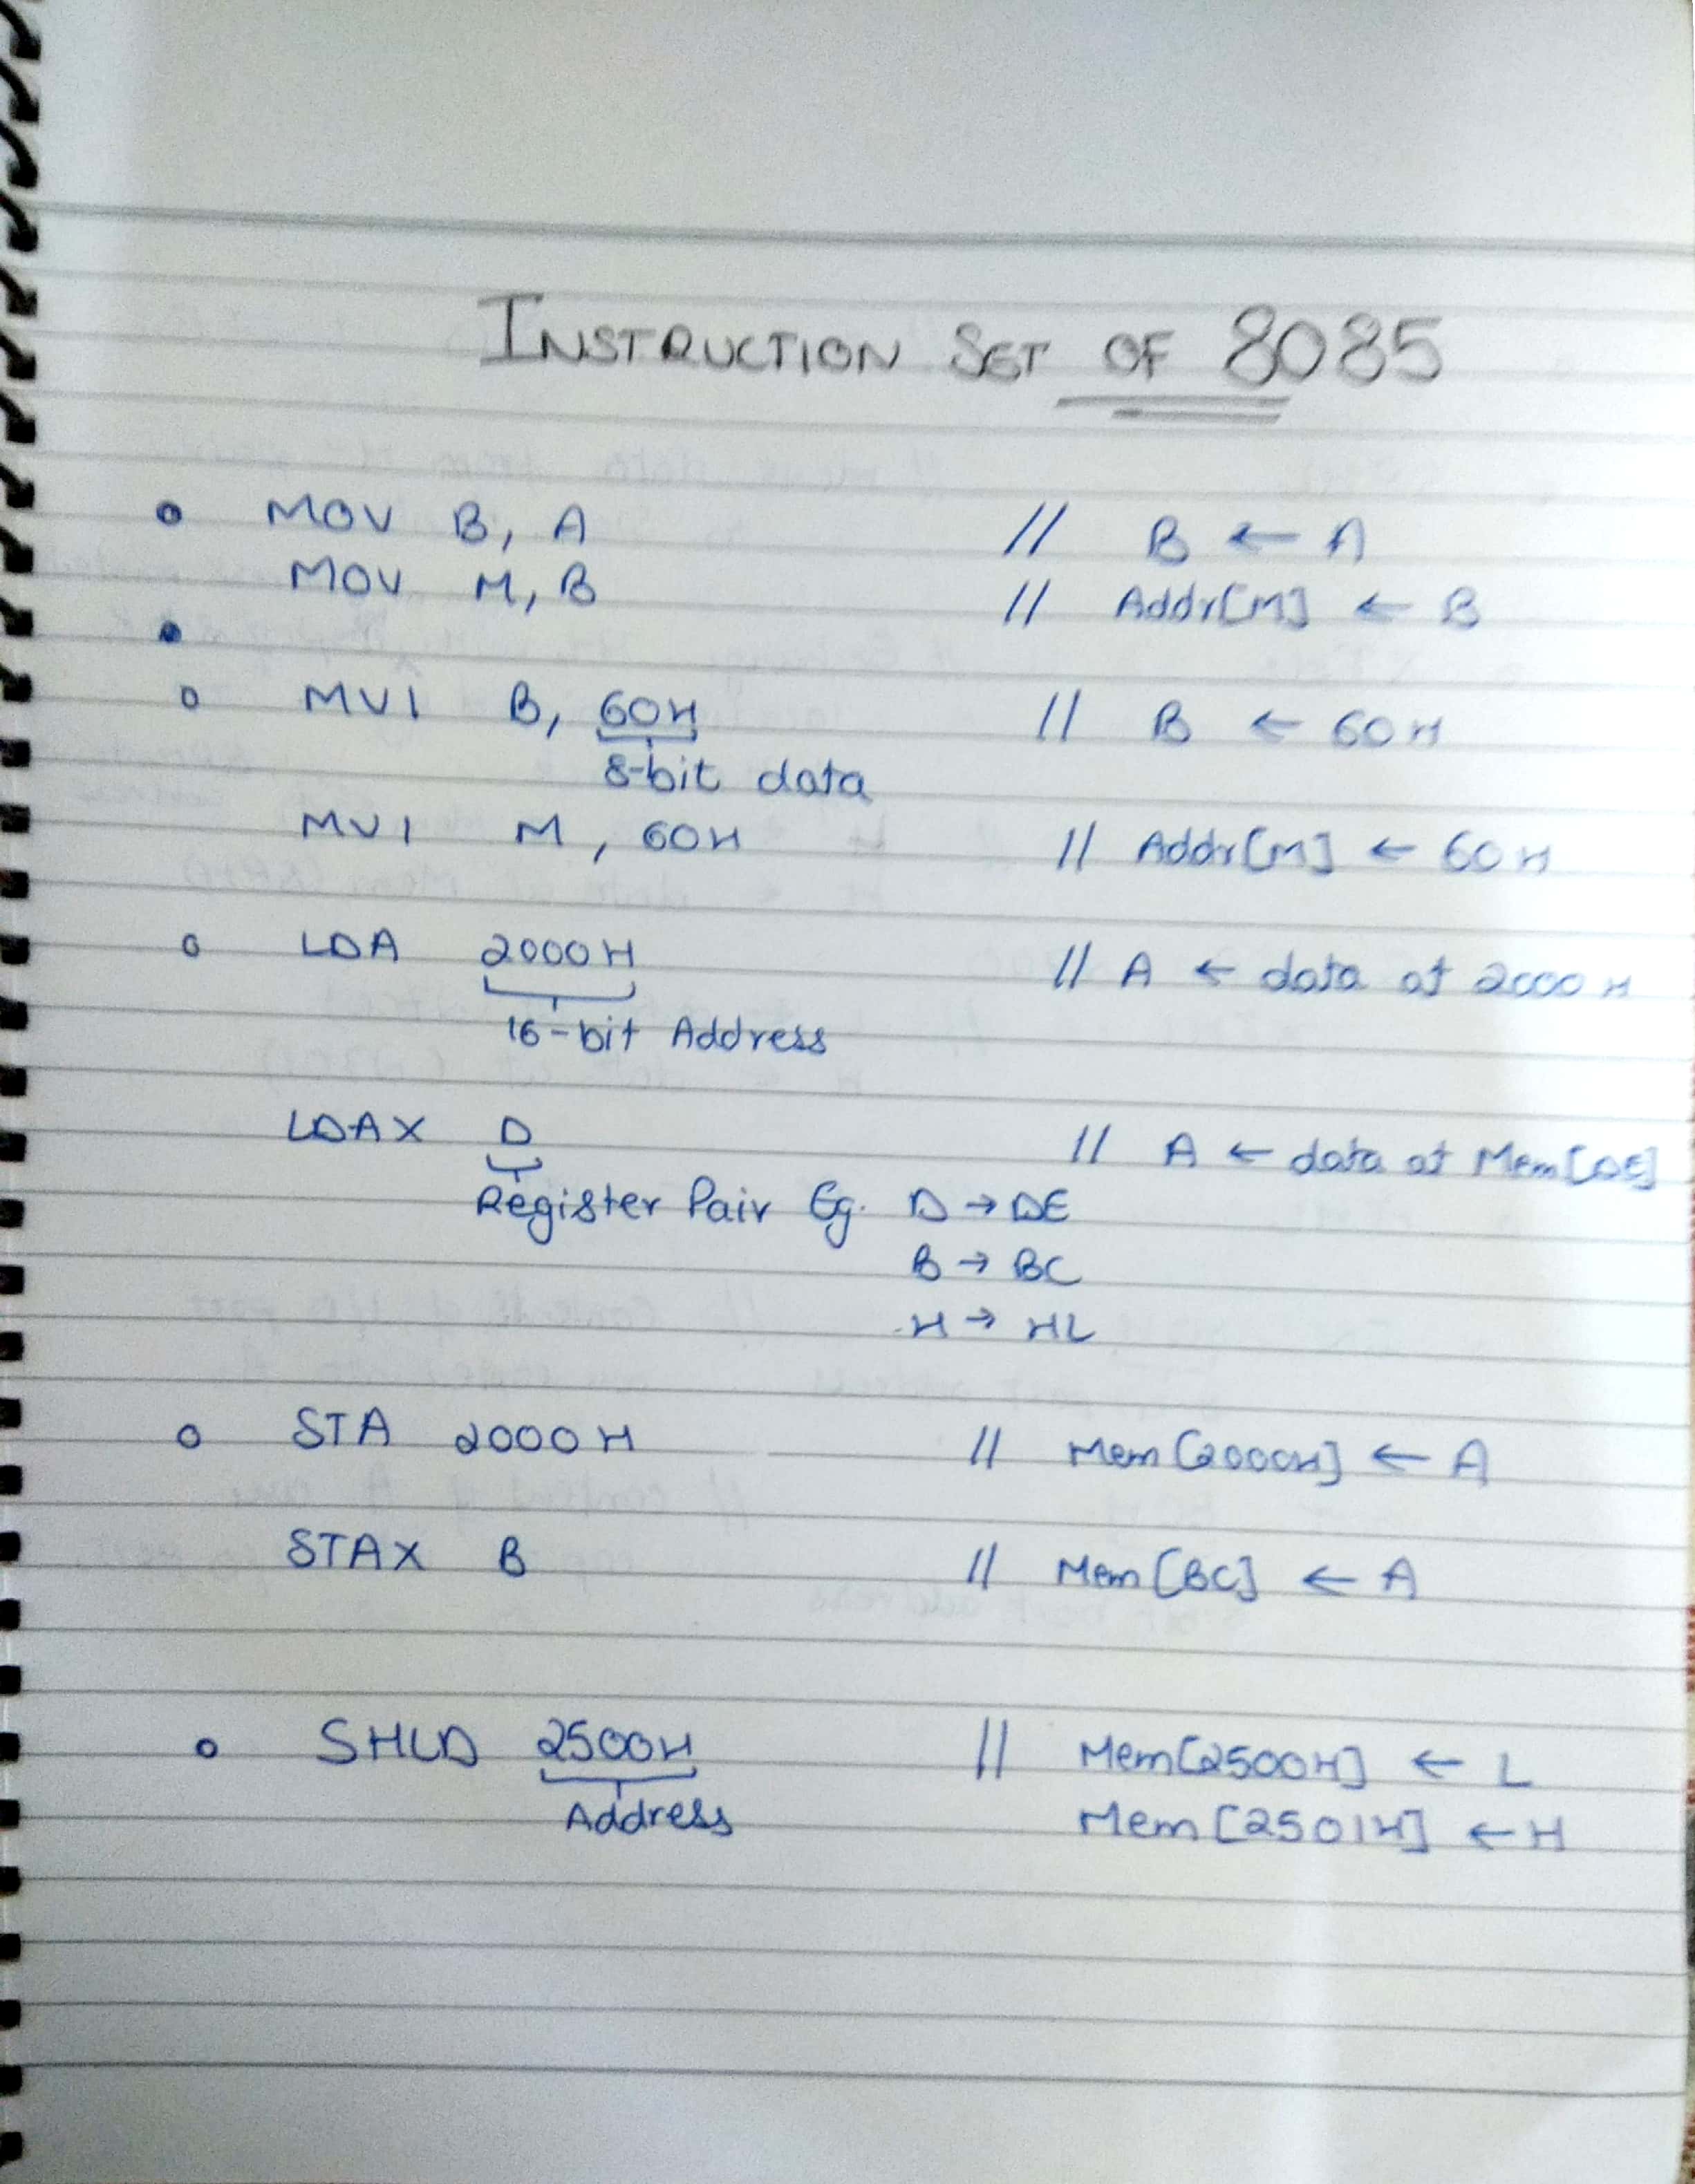 INSTRUCTION SET OF 8085
MOV B, A // B ← A
MOV M, B // Addr[M] ← B
MVI B, 60H // B ← 60H
8-bit data
MVI M, 60H // Addr[M] ← 60H
LDA 2000H // A ← data at 2000H
16-bit Address
LDAX D // A ← data at Mem[DE]
Register Pair Eg. D → DE
B → BC
H → HL
STA 2000H // Mem[2000H] ← A
STAX B // Mem[BC] ← A
SHLD 2500H // Mem[2500H] ← L
Address Mem[2501H] ← H